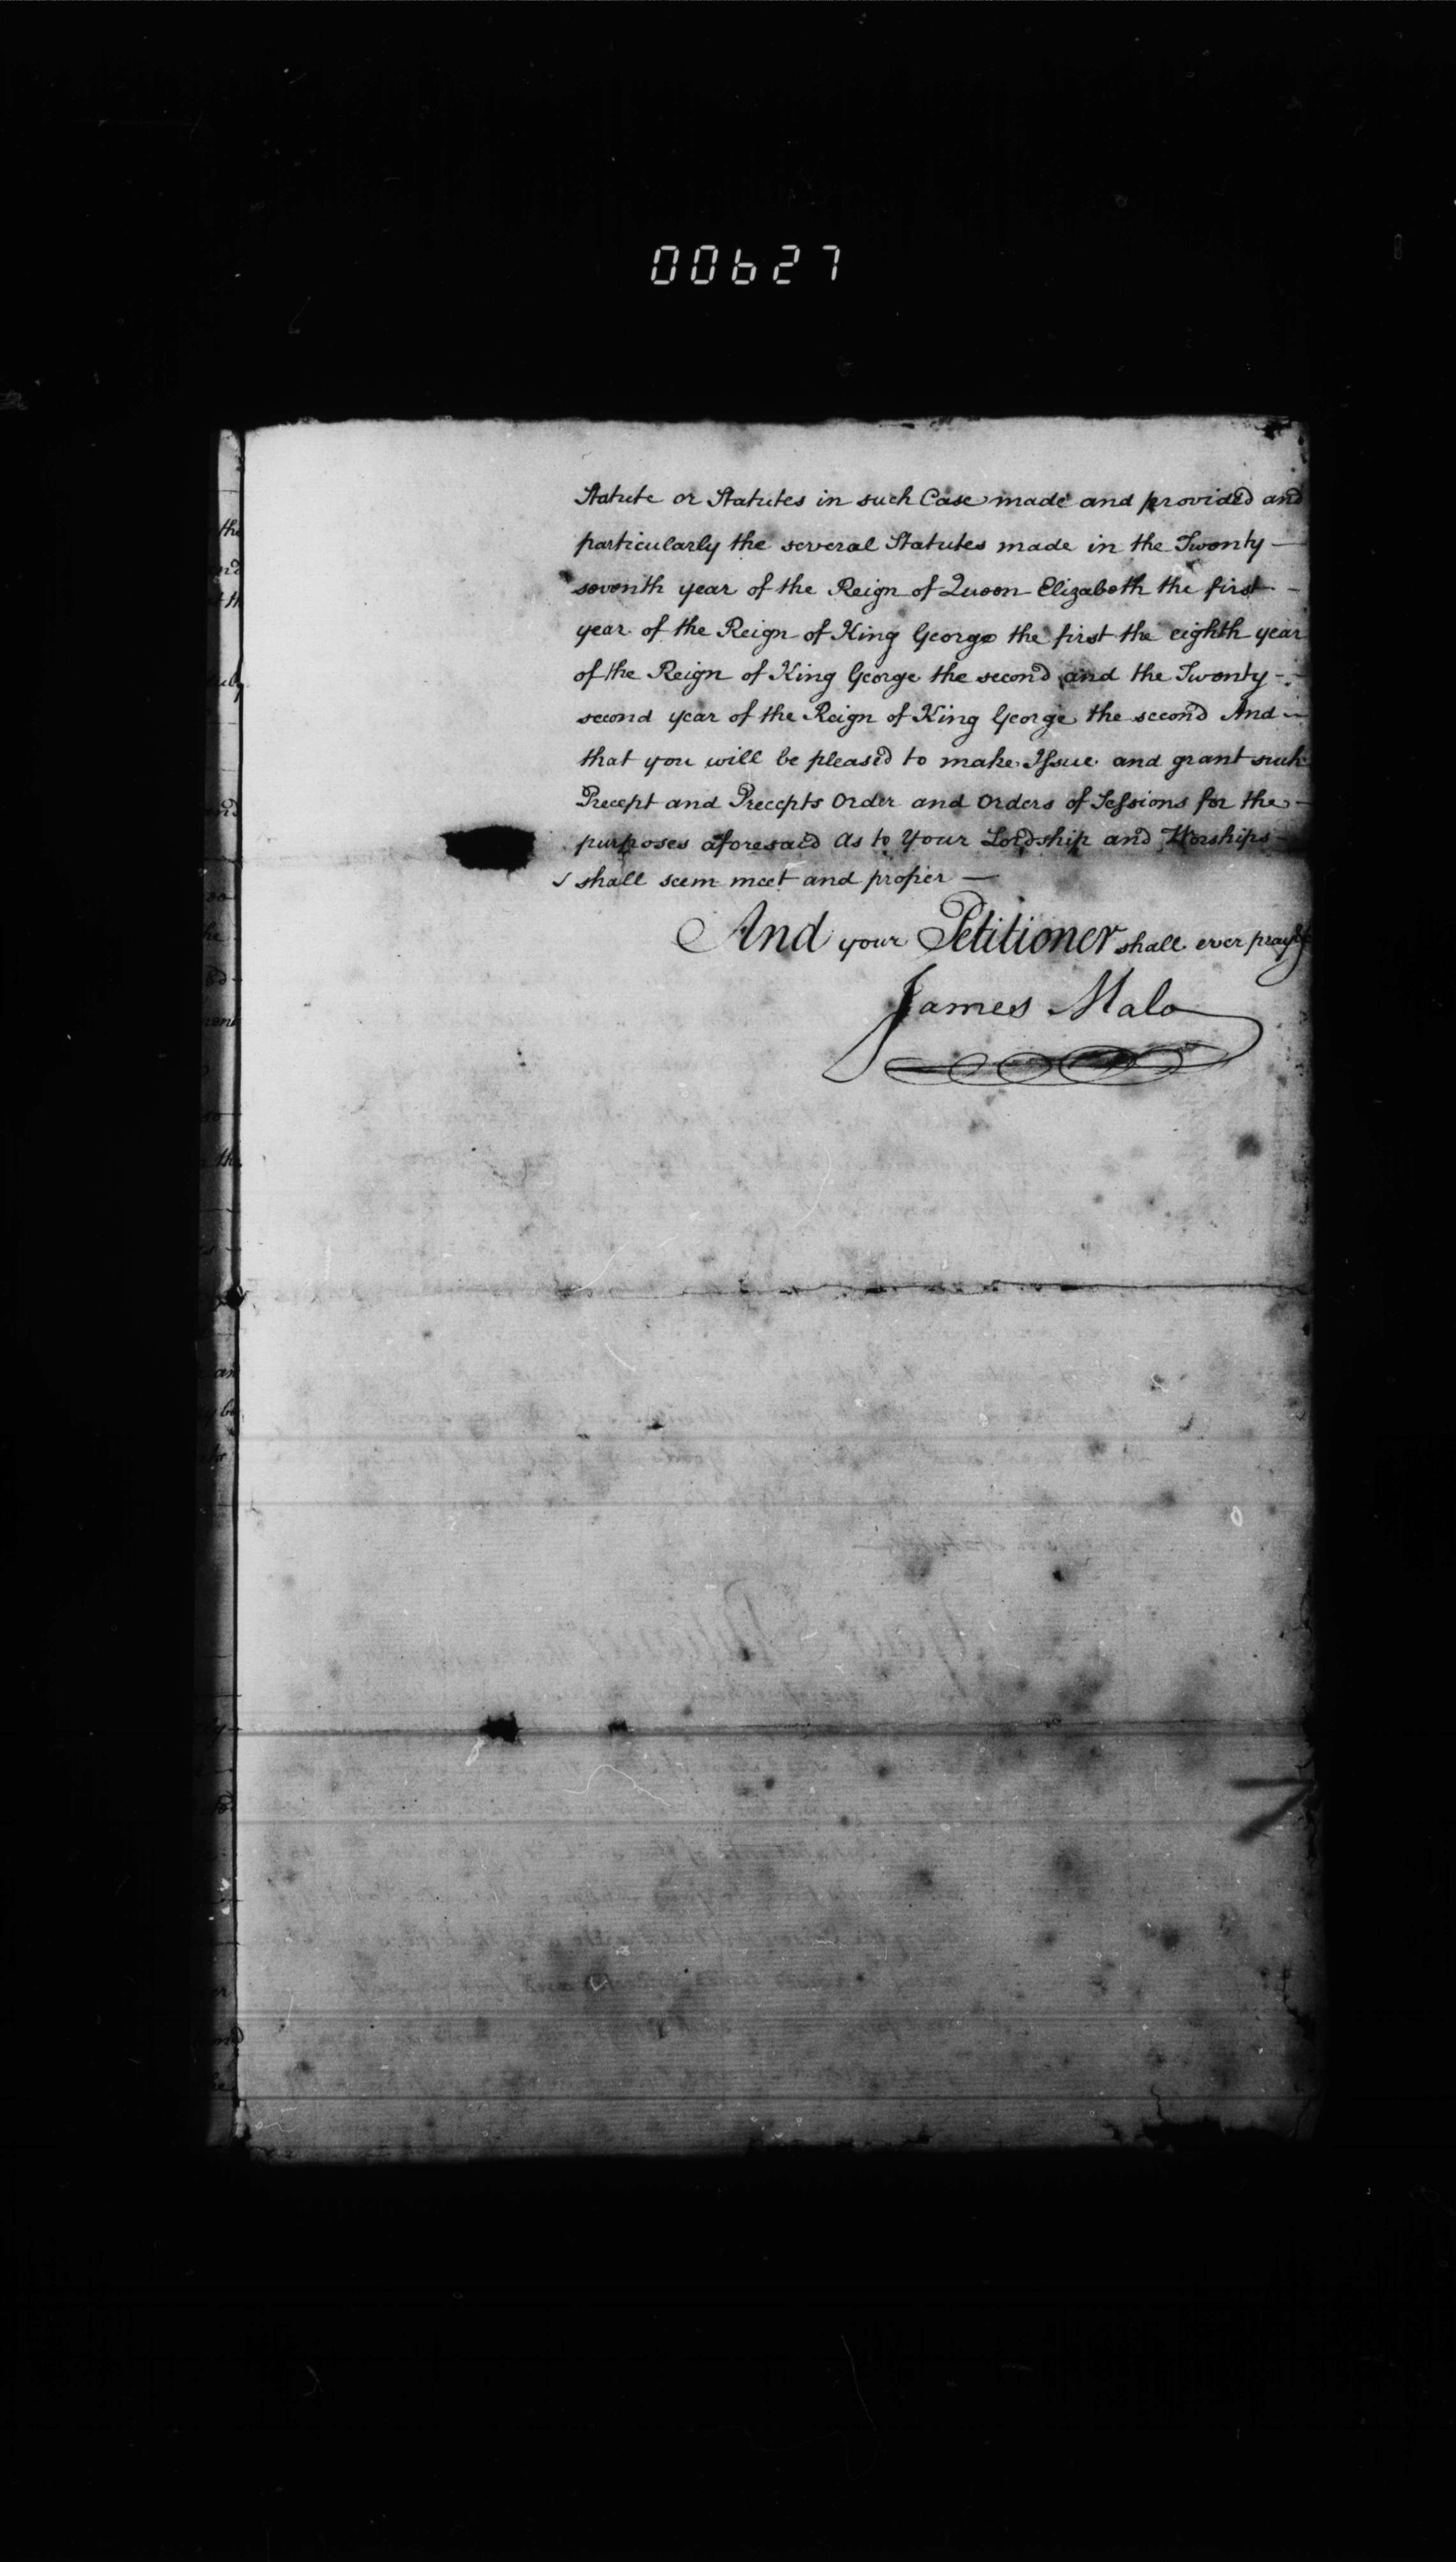 00627
Statute or Statutes in such Case made and provided and
particularly the several Statutes made in the Twenty —
seventh year of the Reign of Queen Elizabeth the first —
year of the Reign of King George the first the eighth year
of the Reign of King George the second and the Twenty —
second year of the Reign of King George the second And —
that you will be pleased to make Issue and grant such
Precept and Precepts Order and Orders of Sessions for the —
purposes aforesaid as to Your Lordship and Worships —
shall seem meet and proper —
And your Petitioner shall ever pray &c
James Malo